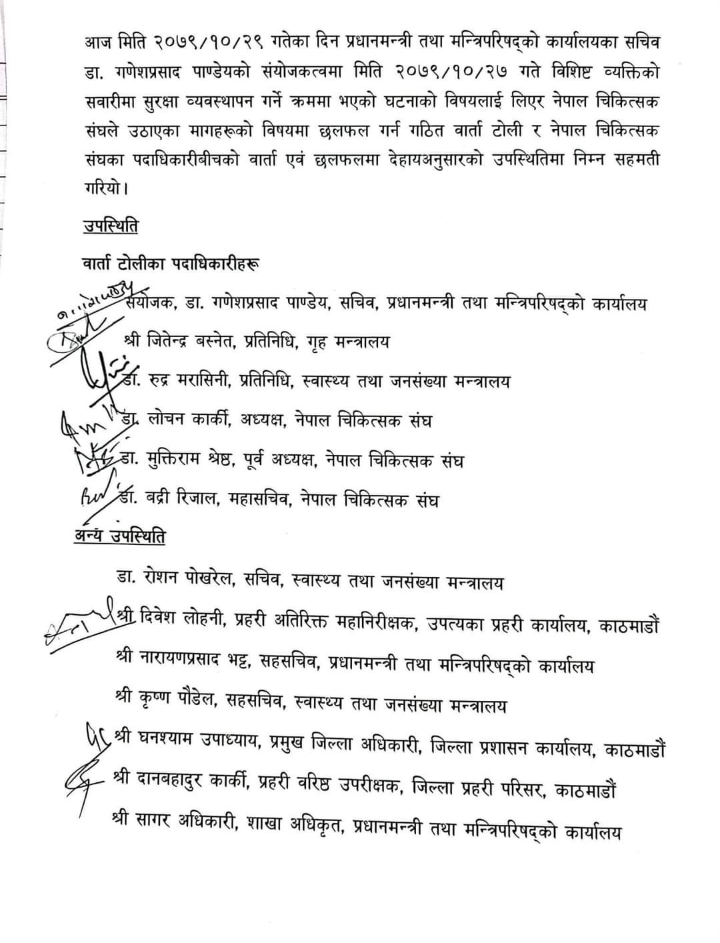 आज मिति २०७९/१०/२९ गतेका दिन प्रधानमन्त्री तथा मन्त्रिपरिषद्को कार्यालयका सचिव
डा. गणेशप्रसाद पाण्डेयको संयोजकत्वमा मिति २०७९/१०/२७ गते विशिष्ट व्यक्तिको
सवारीमा सुरक्षा व्यवस्थापन गर्ने क्रममा भएको घटनाको विषयलाई लिएर नेपाल चिकित्सक
संघले उठाएका मागहरूको विषयमा छलफल गर्न गठित वार्ता टोली र नेपाल चिकित्सक
संघका पदाधिकारीबीचको वार्ता एवं छलफलमा देहायअनुसारको उपस्थितिमा निम्न सहमती
गरियो।
उपस्थिति
वार्ता टोलीका पदाधिकारीहरू
संयोजक, डा. गणेशप्रसाद पाण्डेय, सचिव, प्रधानमन्त्री तथा मन्त्रिपरिषद्को कार्यालय
श्री जितेन्द्र बस्नेत, प्रतिनिधि, गृह मन्त्रालय
डा. रुद्र मरासिनी, प्रतिनिधि, स्वास्थ्य तथा जनसंख्या मन्त्रालय
डा. लोचन कार्की, अध्यक्ष, नेपाल चिकित्सक संघ
डा. मुक्तिराम श्रेष्ठ, पूर्व अध्यक्ष, नेपाल चिकित्सक संघ
डा. वद्री रिजाल, महासचिव, नेपाल चिकित्सक संघ
अन्य उपस्थिति
डा. रोशन पोखरेल, सचिव, स्वास्थ्य तथा जनसंख्या मन्त्रालय
श्री दिवेश लोहनी, प्रहरी अतिरिक्त महानिरीक्षक, उपत्यका प्रहरी कार्यालय, काठमाडौं
श्री नारायणप्रसाद भट्ट, सहसचिव, प्रधानमन्त्री तथा मन्त्रिपरिषद्को कार्यालय
श्री कृष्ण पौडेल, सहसचिव, स्वास्थ्य तथा जनसंख्या मन्त्रालय
श्री घनश्याम उपाध्याय, प्रमुख जिल्ला अधिकारी, जिल्ला प्रशासन कार्यालय, काठमाडौं
श्री दानबहादुर कार्की, प्रहरी वरिष्ठ उपरीक्षक, जिल्ला प्रहरी परिसर, काठमाडौं
श्री सागर अधिकारी, शाखा अधिकृत, प्रधानमन्त्री तथा मन्त्रिपरिषद्को कार्यालय